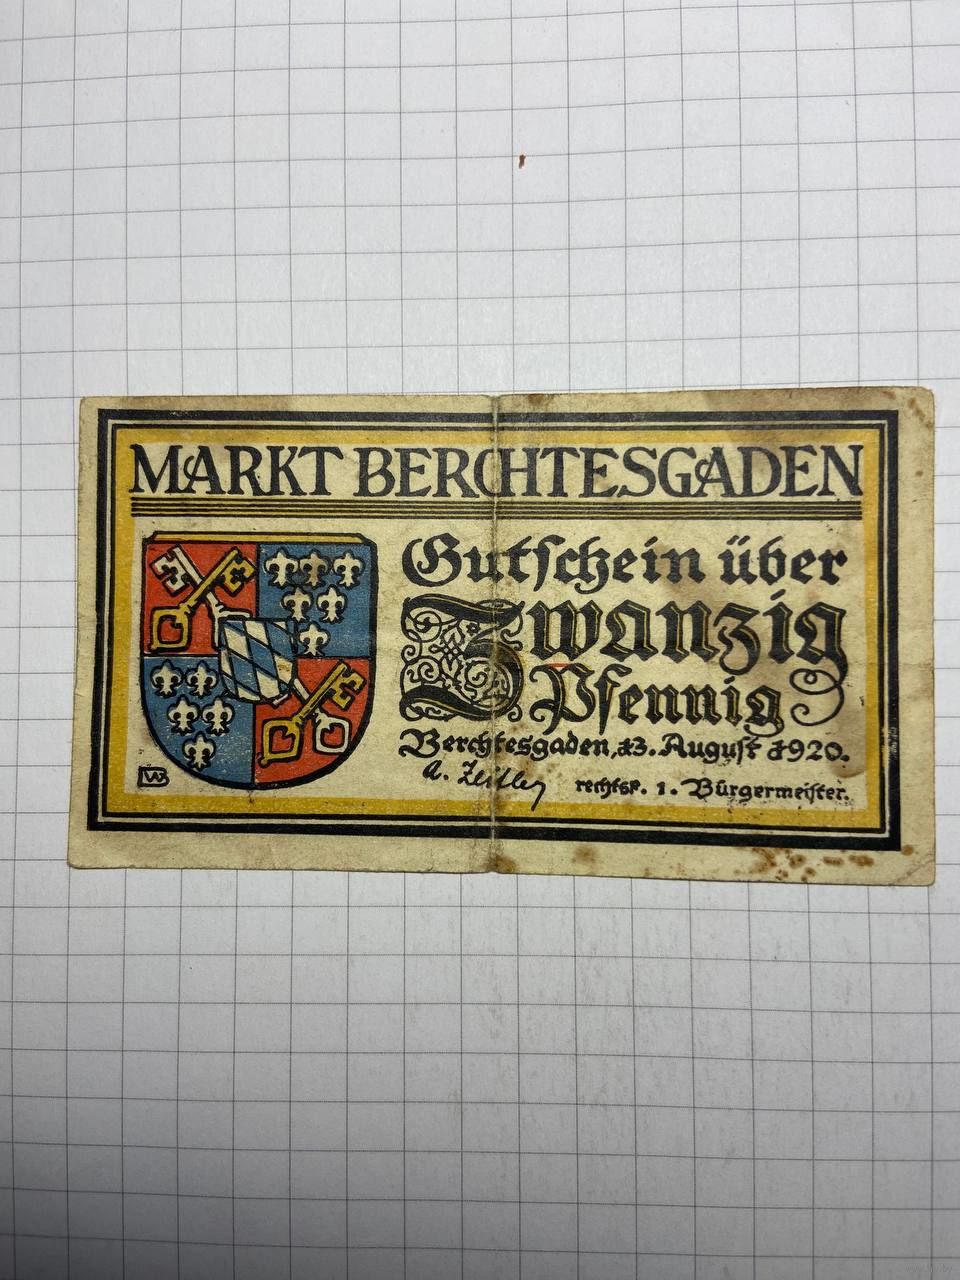 MARKT BERCHTESGADEN
Gutschein über
Zwanzig
Pfennig
Berchtesgaden, 13. August 1920.
rechtsk. 1. Bürgermeister.